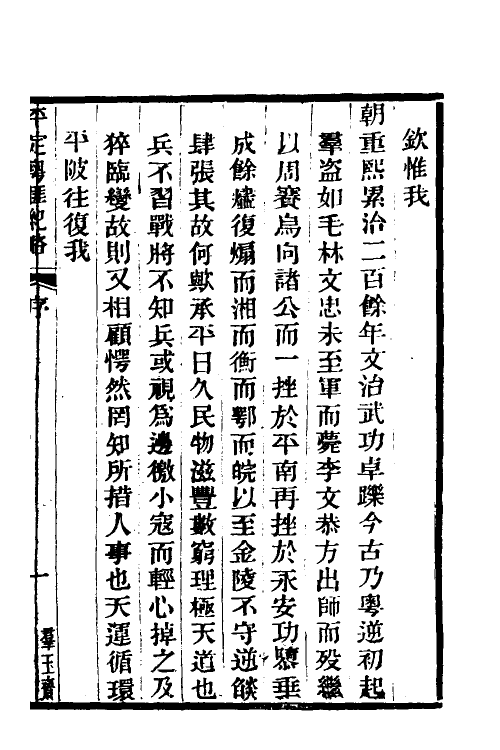 欽惟我
朝重熙累治二百餘年文治武功卓躒今古乃粵逆初起
羣盗如毛林文忠未至軍而薨李文恭方出師而歿繼
以周賽烏向諸公而一挫於平南再挫於永安功隳垂
成餘燼復煽而湘而衡而鄂而皖以至金陵不守逆燄
肆張其故何歟承平日久民物滋豐數窮理極天道也
兵不習戰將不知兵或視爲邊徼小寇而輕心掉之及
猝臨變故則又相顧愕然罔知所措人事也天運循環
平陂往復我
平定粵匪紀略
序
一
羣玉齋